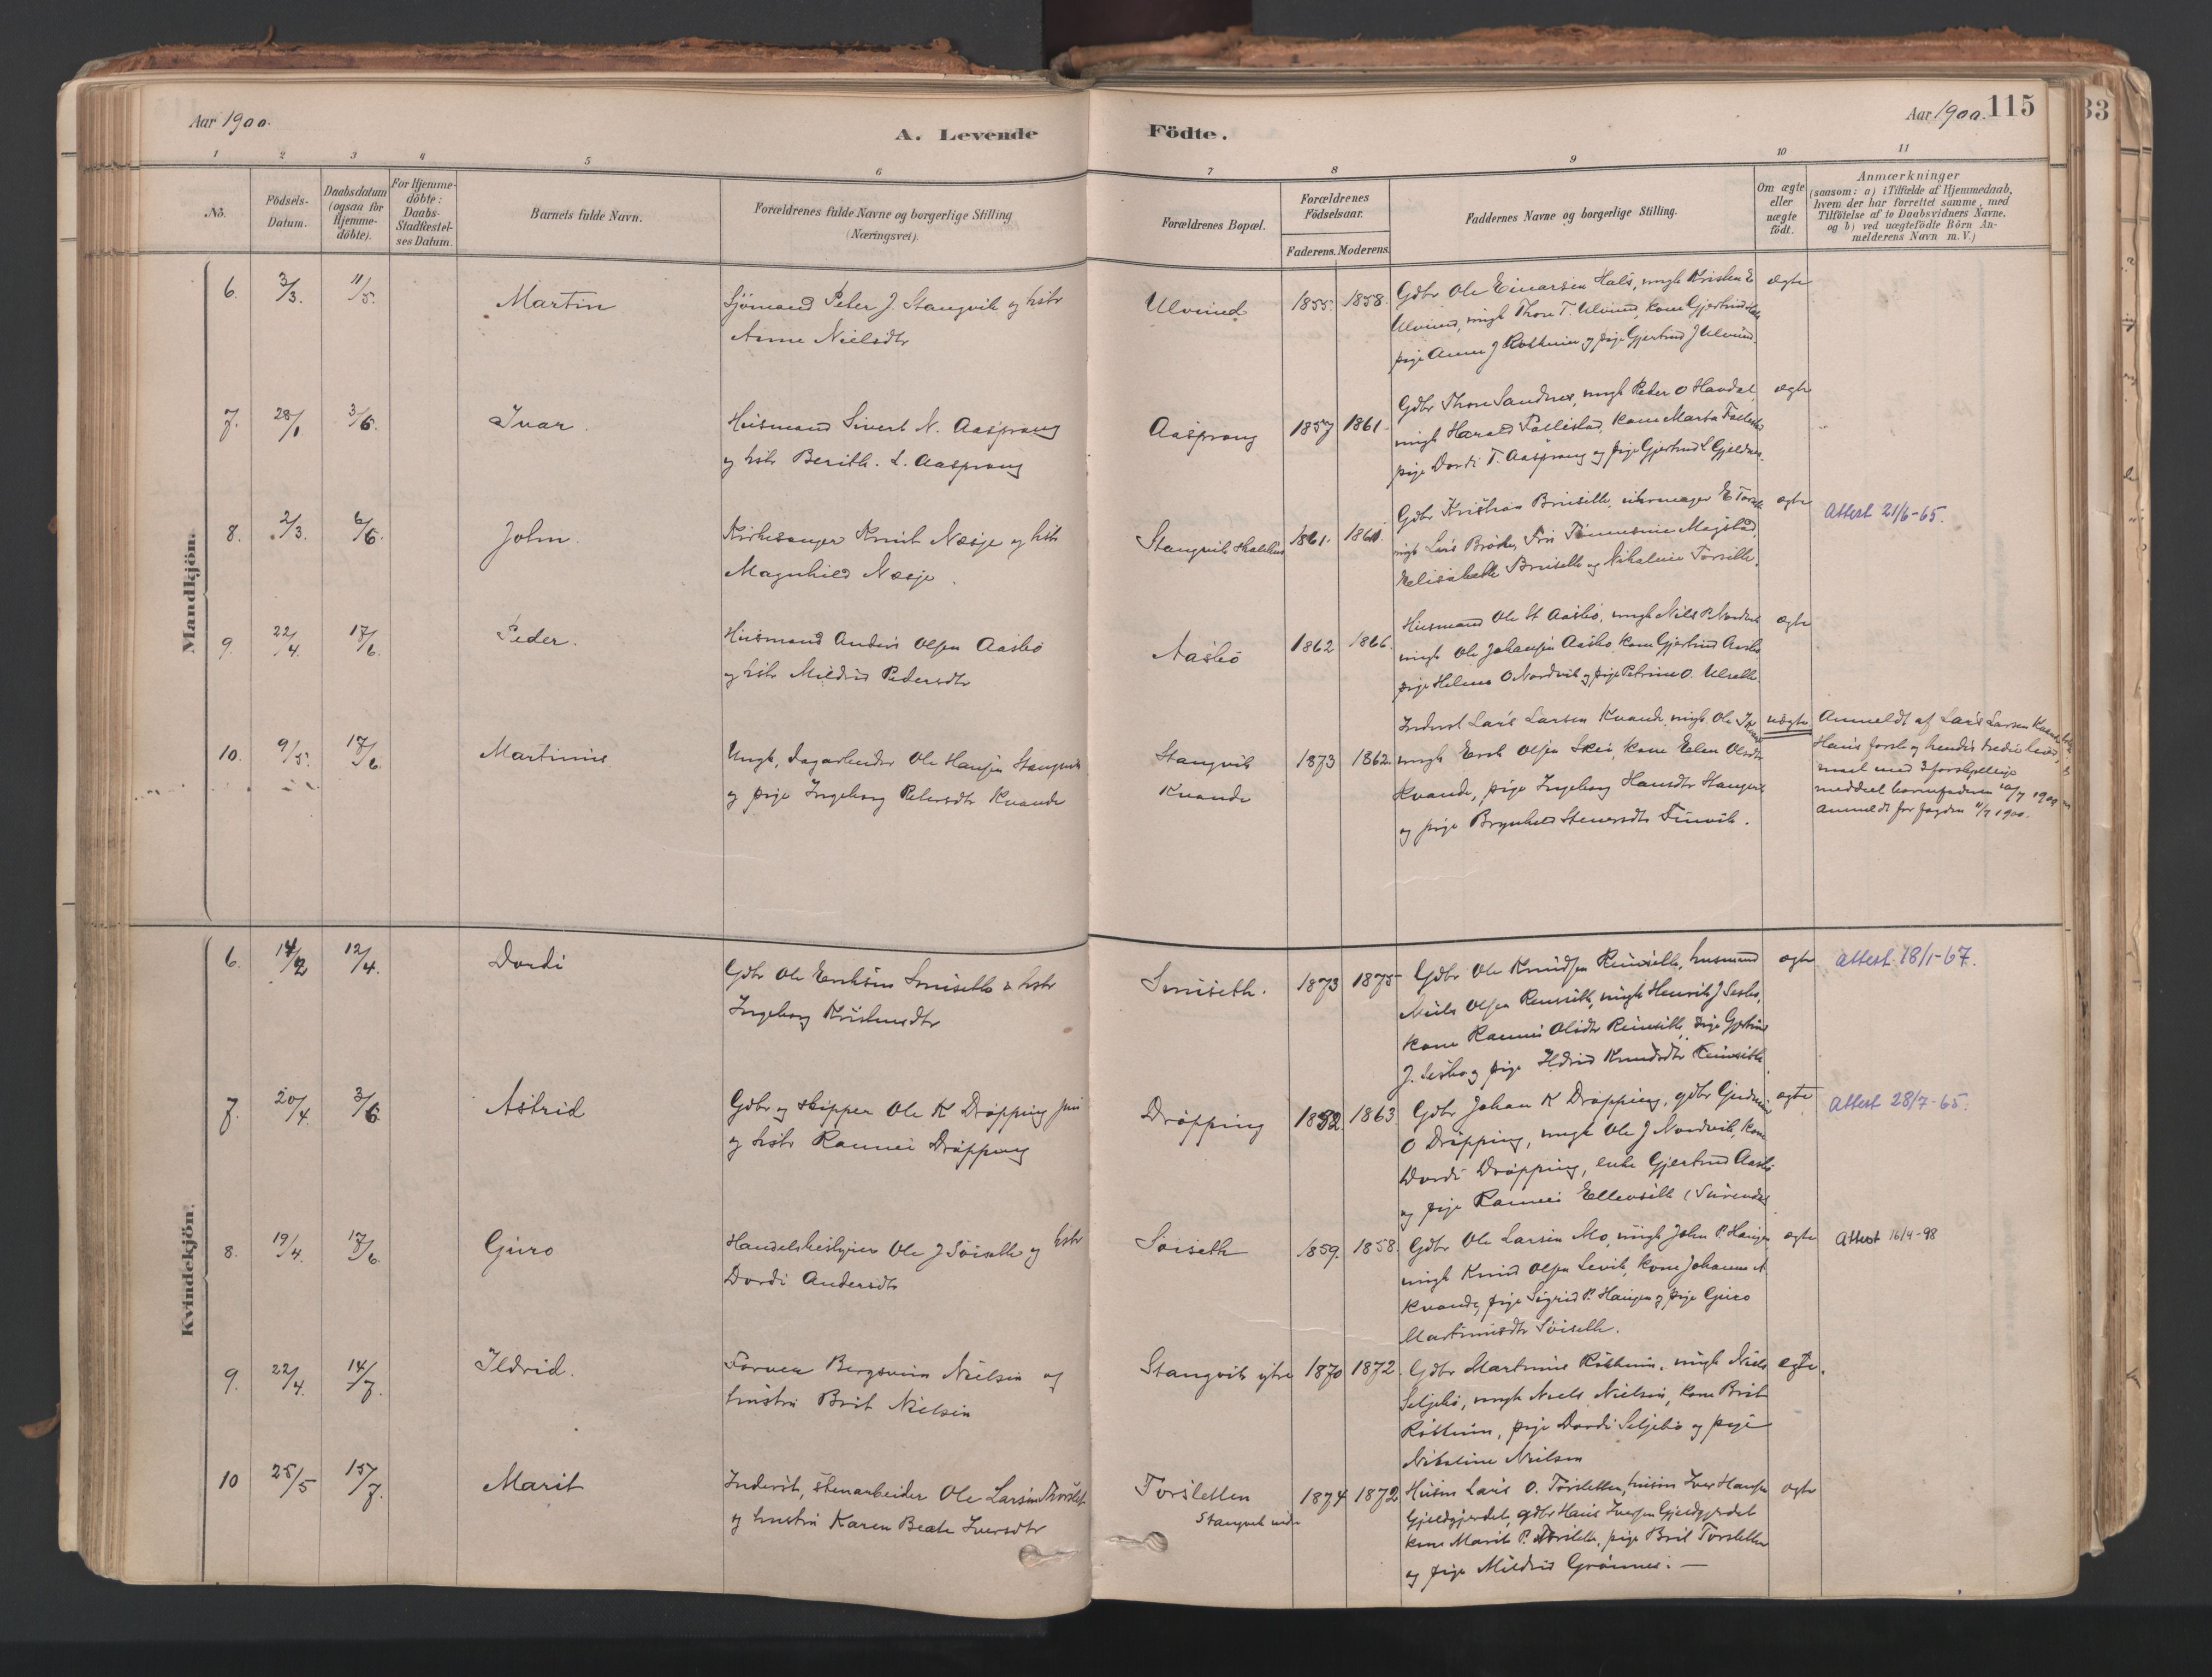 Aar 1900.
A. Levende Födte.
Aar 1900. 115
33
1 2 3 4 5 6 7 8 9 10 11
No.
Födsels-Datum.
Daabsdatum (ogsaa for Hjemme-döbte).
For Hjemme-döbte: Daabs-Stadfæstel-ses Datum.
Barnets fulde Navn.
Forældrenes fulde Navne og borgerlige Stilling (Næringsvei).
Forældrenes Bopæl.
Forældrenes Födselsaar.
Faderens. Moderens.
Faddernes Navne og borgerlige Stilling.
Om ægte eller uægte födt.
Anmærkninger
(saasom: a) i Tilfælde af Hjemmedaab,
hvem der har forrettet samme, med
Tilföielse af to Daabsvidners Navne.
og b) ved uægtefödte Börn An-
melderens Navn m.V.)
Mandkjön.
6. 3/3. 11/5. Martin
Sjömand Peter J. Stangvik og hstr
Anne Nielsdtr
Ulvund 1855. 1858.
Gdbr Ole Einarsen Hals, ungk Kristen E
Ulvund, ungk Thore T. Ulvund, kone Gjertrud
pige Anne J Rottum og pige Gjertrud J Ulvund.
ægte
7. 28/1 3/6. Ivar.
Husmand Sivert N. Aasprong
og hstr Berith. L. Aasprong
Aasprong 1857 1861.
Gdbr Thore Sandnes, ungk Peder O Havdal,
ungk Harald, kone Marta
pige Dordi T. Aasprong og pige Gjertrud L Gjeldnes.
ægte
8. 2/3. 6/6. John.
Kirkesanger Knut Næsje og hstr
Magnhild Næsje.
Stangvik 1861. 1861.
Gdbr Kristian Bruseth, E
ungk Lars, Magstad,
Elisabeth Bruseth og Nikoline Torseth.
ægte
Attest 21/6-65.
9. 22/4. 17/6. Peder.
Husmand Anders Olsen Aasbö
og hstr Mildrid Pedersdtr
Aasbö 1862 1866.
Husmand Ole St Aasbö, ungk Niels P. Nordvik
ungk Ole Johansen Aasbö, kone Gjertrud Aasbö
pige Helena O Nordvik og pige Petrine O. Ulseth.
ægte
10. 9/5. 17/6. Martinus
Ungk, dagarbeider Ole Hansen Stangvik
og pige Ingeborg Petersdtr Kvande
Stangvik
Kvande
1873 1862.
Inderst Lars Larsen Kvande, ungk Ole
ungk Erik Olsen Skei, kone Elen Olsdtr
Kvande, pige Ingeborg Hansdtr Stangvik
og pige Brynhild Steversdtr.
uægte
Anmeldt af Lars Larsen Kvande
Hans förste og hendes tredie
med 3 forskjellige
meddelt barnefaderen 10/7 1900
Anmeldt for fogden 11/7 1900.
Kvindekjön.
6. 14/2 12/4. Dordi
Gdbr Ole Eriksen Smiseth & hstr
Ingeborg Kristensdtr
Smiseth. 1873 1875
Gdbr Ole Knudsen, husmand
Niels Olsen, ungk Henrik J Sesbø,
kone Rannei Olsdtr, pige
J. Sesbø og pige Ildrid Knudsdtr
ægte
Attest 18/1-67.
7. 20/4. 3/6. Astrid
Gdbr og skipper Ole K Dröpping jun
og hstr Rannei Dröpping
Dröpping 1852. 1863.
Gdbr Johan K Dröpping, gdbr Gudmund
O Dröpping, ungk Ole J Nordvik, kone
Dordi Dröpping, enke Gjertrud Aasbö
og pige Rannei Ellevseth (Surendal
ægte
Attest 28/7-65.
8. 19/4. 17/6. Guro
Handelsbestyrer Ole J Söiseth og hstr
Dordi Andersdtr
Söiseth 1859. 1858.
Gdbr Ole Larsen Mo, ungk John P. Haugen,
ungk Knud Olsen, kone Johanna A.
Kvande, pige Sigrid P. Haugen og pige Guro
Martinusdtr Söiseth.
ægte
Attest 16/4-98
9. 22/4. 14/7. Ildrid.
Forven Bergsvein Nielsen og
hustru Brit Nielsen
Stangvik ytre 1870 1872.
Gdbr Martinus Rottum, ungk Niels
Seljebö, ungk Niels Nielsen, kone Brit
Rottum, pige Dordi Seljebö og pige
Nikoline Nielsen
egte.
10 25/5 15/7. Marit
Inderst, stenarbeider Ole Larsen
og hustru Karen Beate Iversdtr
Torsletten
Stangvik
1874 1872
Husm Lars O. Torsletten, husm Iver Hansen
Gjeldgjerdet, gdbr Hans Iversen Gjeldgjerdet
kone Marit P. Torsletten, pige Brit Torsletten
og pige Mildrid Grönnes. —
ægte